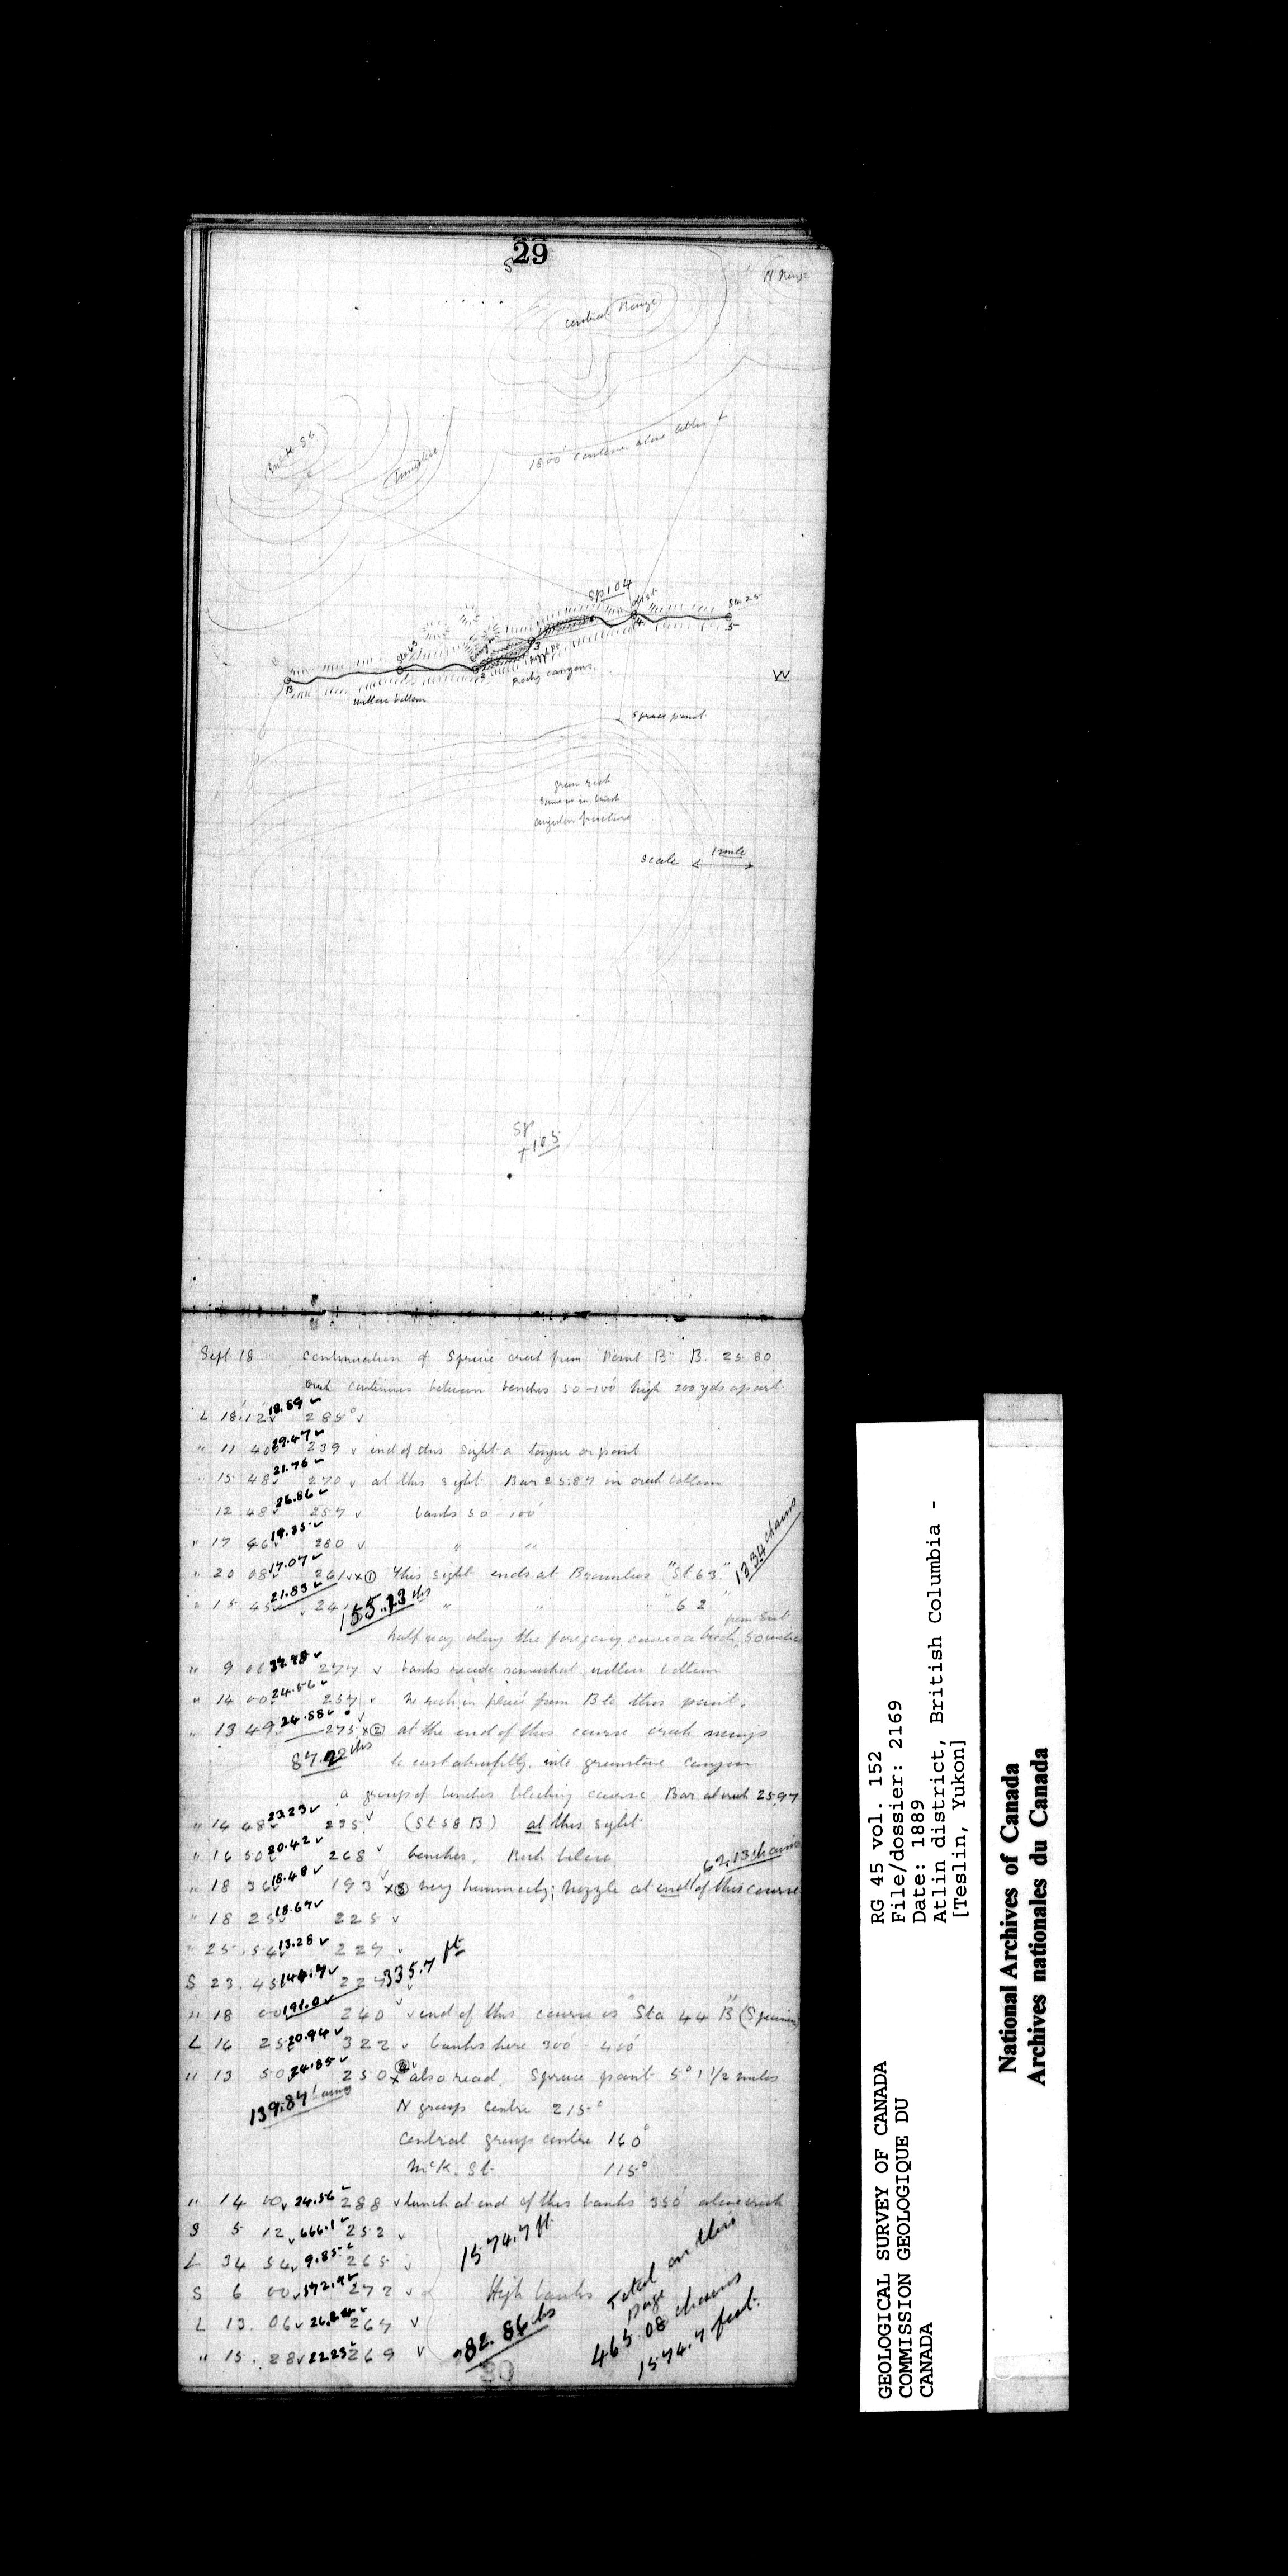 29
S
N Range
Central Range
1800' contour above Atlin L
Sp 104
Sta 25
St 63
4
5
3
2
B
Rocky canyons
willow bottom
W
Spruce point
green rock
same as in creek
angular fracture
scale 1 mile
SP
+105
Sept 18 Continuation of Spruce creek from Point B. B. 25.80
creek continues between benches 50-100' high 200 yds apart
L 18 12 18.69 285°
" 11 40 29.47 239 end of this sight a tongue or point
15 48 21.76 270 at this sight Bar 25.87 in creek bottom
12 48 26.86 257 banks 50-100'
" 17 46 19.35 280 " "
" 20 08 17.07 261 x① This sight ends at Brownlees "St 63" 133.4 chains
" 15 45 21.83 241 " " " 62 "
155.13 chs
half way along the foregoing course a creek from East 50 inches
" 9 06 37.48 277 banks recede somewhat, willow bottom
" 14 00 24.56 257 no rock in place from B to this point.
" 13 49 24.88 275 x② at the end of this course creek swings
87.92 chs
to east abruptly into greenstone canyon
a group of benches blocking course Bar at creek 25.97
" 14 48 23.23 235 (St 58 B) at this sight
" 16 50 20.42 268 benches. Rock below
62.13 chains
" 18 36 18.48 193 x③ very hummocky; nozzle at end of this course
" 18 25 18.67 225
" 25 54 13.28 227
S 23 45 144.7 227 335.7 ft
" 18 00 191.0 240 end of this course is "Sta 44" B (Specimen)
L 16 25 20.94 322 banks here 300 - 400'
" 13 50 24.85 250 x④ also read. Spruce point 5° 1 1/2 miles
139.87 chains
N group centre 215°
Central group centre 160°
McK. St. 115°
" 14 00 24.56 288 lunch at end of this banks 350' above creek
S 5 12 666.1 252
1574.7 ft
L 34 54 9.85 265
S 6 00 572.9 272 High banks
L 13 06 26.24 267
" 15 28 22.23 269
82.86 chs
Total on this
page
465.08 chains
1574.7 feet.
30
GEOLOGICAL SURVEY OF CANADA
COMMISSION GEOLOGIQUE DU
CANADA
RG 45 vol. 152
File/dossier: 2169
Date: 1889
Atlin district, British Columbia -
[Teslin, Yukon]
National Archives of Canada
Archives nationales du Canada